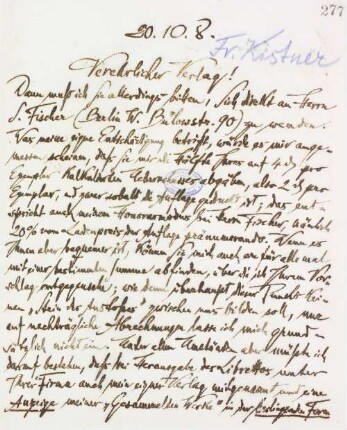 277
20.10.8.
Fr. Kistner
Verehrlicher Verlag!
Dann muß ich Sie allerdings bitten, sich direkt an Herrn
S. Fischer (Berlin W. Bülowstr. 90) zu wenden.
Was meine eigne Entschädigung betrifft, würde es mir ange-
messen scheinen, daß Sie mir die Hälfte Ihres auf 4 d pro
Exemplar kalkulierten abgäben, also 2 d pro
Exemplar, und zwar sobald die Auflage gedruckt ist; das ent-
spricht auch meinem Honorarmodus bei Herrn Fischer, nämlich
20% vom Ladenpreis der Auflage praenumerando. Wenn es
Ihnen aber bequemer ist, können Sie mich auch ein für alle mal
mit einer Summe abfinden, über die ich Ihrem Vor-
schlag entgegensehe; wie denn überhaupt dieser Punkt kei-
nen „Stein des Anstoßes" zwischen uns bilden soll, nur
auf nachträgliche Abrechnungen lasse ich mich grund-
sätzlich nicht ein. Unter allen Umständen aber müßte ich
darauf bestehen, daß bei Herausgabe des Librettos unter
Ihrer Firma auch mein eigner Verlag mitgenannt und eine
Anzeige meiner „Gesammelten Werke" in der Form